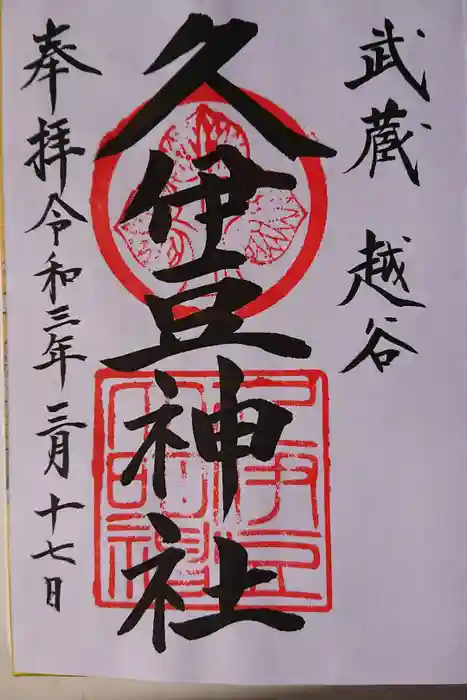 武蔵 越谷
久伊豆神社
奉拝 令和三年 三月 十七日